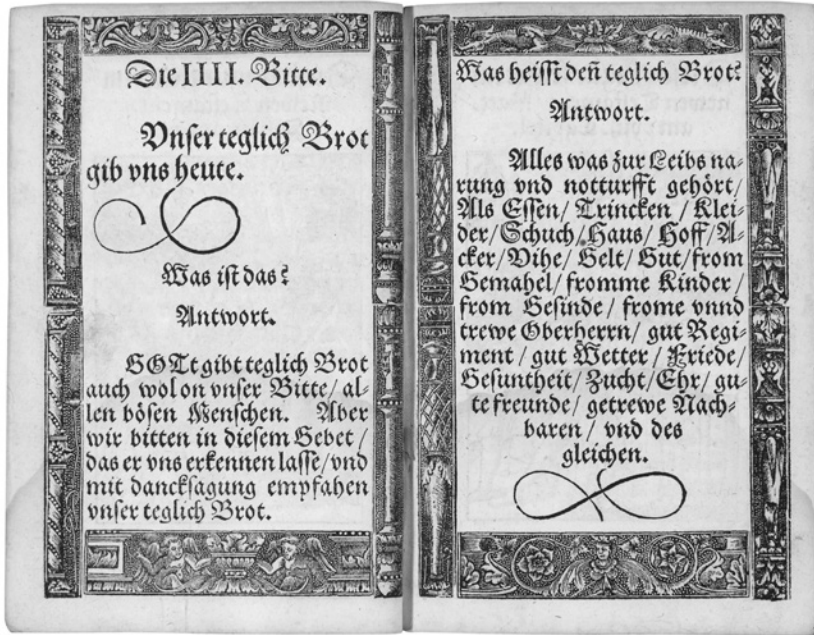 Die IIII. Bitte.
Vnser teglich Brot
gib vns heute.
Was ist das?
Antwort.
GOTt gibt teglich Brot
auch wol on vnser Bitte/ al-
len bösen Menschen. Aber
wir bitten in diesem Gebet /
das er vns erkennen lasse/vnd
mit dancksagung empfahen
vnser teglich Brot.
Was heisst den̄ teglich Brot?
Antwort.
Alles was zur Leibs na-
rung vnd notturfft gehört/
Als Essen/ Trincken / Klei-
der/Schuch/Haus/ Hoff/A-
cker/Vihe/ Gelt/ Gut/from
Gemahel/ fromme Kinder/
from Gesinde/ frome vnnd
trewe Oberherrn/ gut Regi-
ment / gut Wetter / Friede/
Gesuntheit/ Zucht/Ehr/ gu-
te freunde/ getrewe Nach-
baren / vnd des
gleichen.